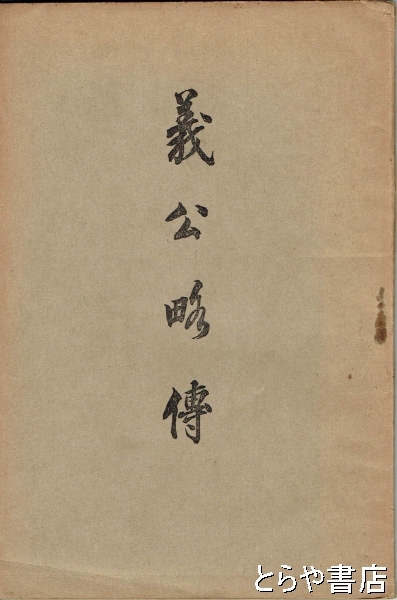 義公略傳
とらや書店